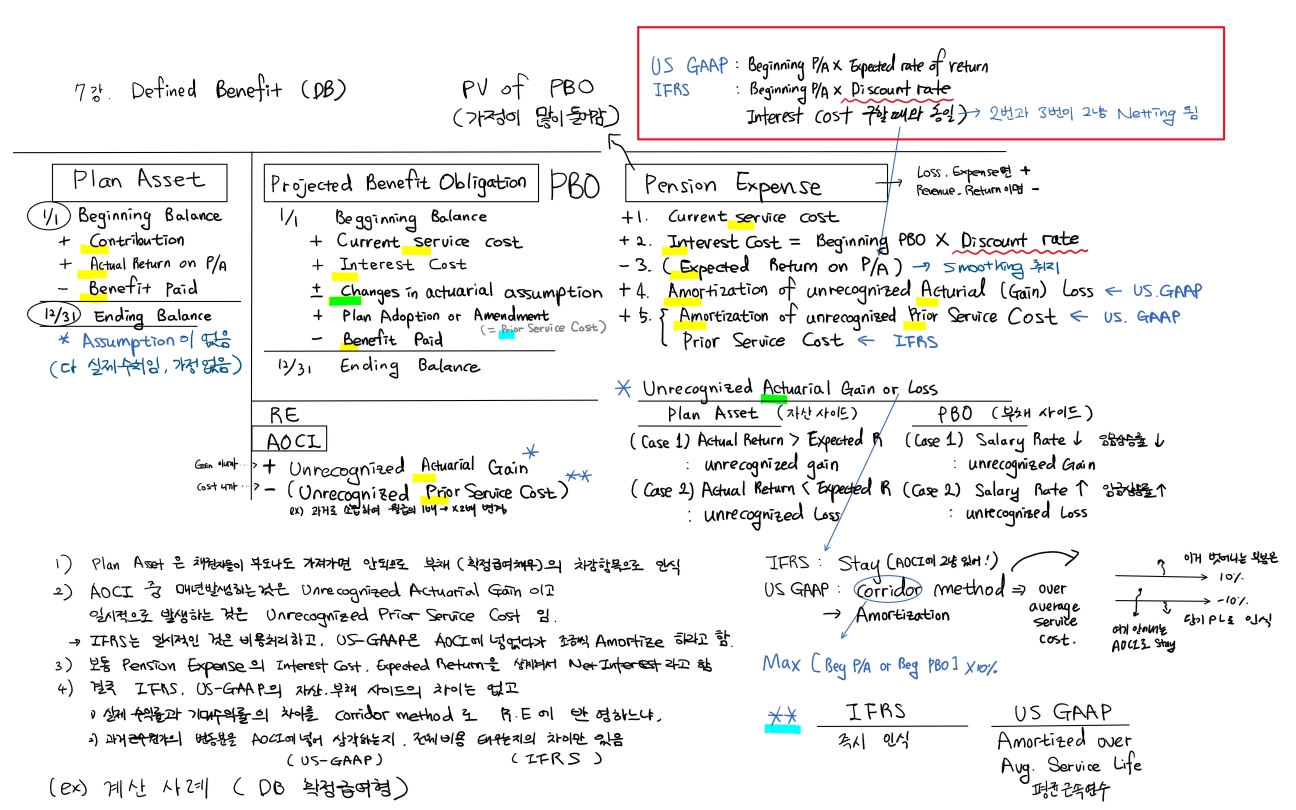 7강. Defined Benefit (DB)
PV of PBO
(가정이 많이 들어감)
US GAAP : Beginning P/A × Expected rate of return
IFRS : Beginning P/A × Discount rate
Interest cost 구할때와 동일) → 2번과 3번이 그냥 Netting 됨
Plan Asset
1/1 Beginning Balance
+ Contribution
+ Actual Return on P/A
- Benefit Paid
12/31 Ending Balance
* Assumption이 없음
(다 실제수치임, 가정없음)
Projected Benefit Obligation PBO
1/1 Beggining Balance
+ Current service cost
+ Interest Cost
± Changes in actuarial assumption
+ Plan Adoption or Amendment
(= Prior Service Cost)
- Benefit Paid
12/31 Ending Balance
Pension Expense
→ Loss, Expense면 +
Revenue, Return이면 -
+1. Current service cost
+2. Interest Cost = Beginning PBO × Discount rate
-3. (Expected Return on P/A) → Smoothing 취지
+4. Amortization of unrecognized Acturial (Gain) Loss ← US.GAAP
+5. Amortization of unrecognized Prior Service Cost ← US. GAAP
Prior Service Cost ← IFRS
RE
AOCI
Gain 이니까 ···> + Unrecognized Actuarial Gain *
Cost 니까 ···> - (Unrecognized Prior Service Cost) **
ex) 과거로 소급하여 월급의 1배 → ×2배 변경
* Unrecognized Actuarial Gain or Loss
Plan Asset (자산 사이드)
(Case 1) Actual Return > Expected R
: unrecognized gain
(Case 2) Actual Return < Expected R
: unrecognized Loss
PBO (부채 사이드)
(Case 1) Salary Rate ↓ 임금상승률 ↓
: unrecognized Gain
(Case 2) Salary Rate ↑ 임금상승률 ↑
: unrecognized Loss
IFRS : Stay (AOCI에 그냥 있어!)
US GAAP : Corridor method ⇒ over
average
service
cost.
→ Amortization
Max [Beg P/A or Beg PBO] × 10%
이거 벗어나는 윗분은
10%
-10%
당기 PL로 인식
여기 안에서는
AOCI로 Stay
1) Plan Asset 은 채권자들이 부도나도 가져가면 안되므로 부채 (확정급여채무)의 차감항목으로 인식
2) AOCI 중 매년발생하는것은 Unrecognized Actuarial Gain 이고
일시적으로 발생하는 것은 Unrecognized Prior Service Cost 임.
→ IFRS는 일시적인 것은 비용처리하고, US-GAAP은 AOCI에 넣었다가 조금씩 Amortize 하라고 함.
3) 보통 Pension Expense의 Interest Cost, Expected Return을 상계쳐서 Net Interest 라고 함
4) 결국 IFRS, US-GAAP의 자산.부채 사이드의 차이는 없고
1) 실제 수익률과 기대수익률의 차이를 corridor method로 R.E에 반영하느냐,
2) 과거근무원가의 변동분을 AOCI에 넣어 상각하는지, 전체비용 태우는지의 차이만 있음
(US-GAAP) (IFRS)
** IFRS
즉시 인식
US GAAP
Amortized over
Avg. Service Life
평균근속연수
(ex) 계산 사례 ( DB 확정급여형)